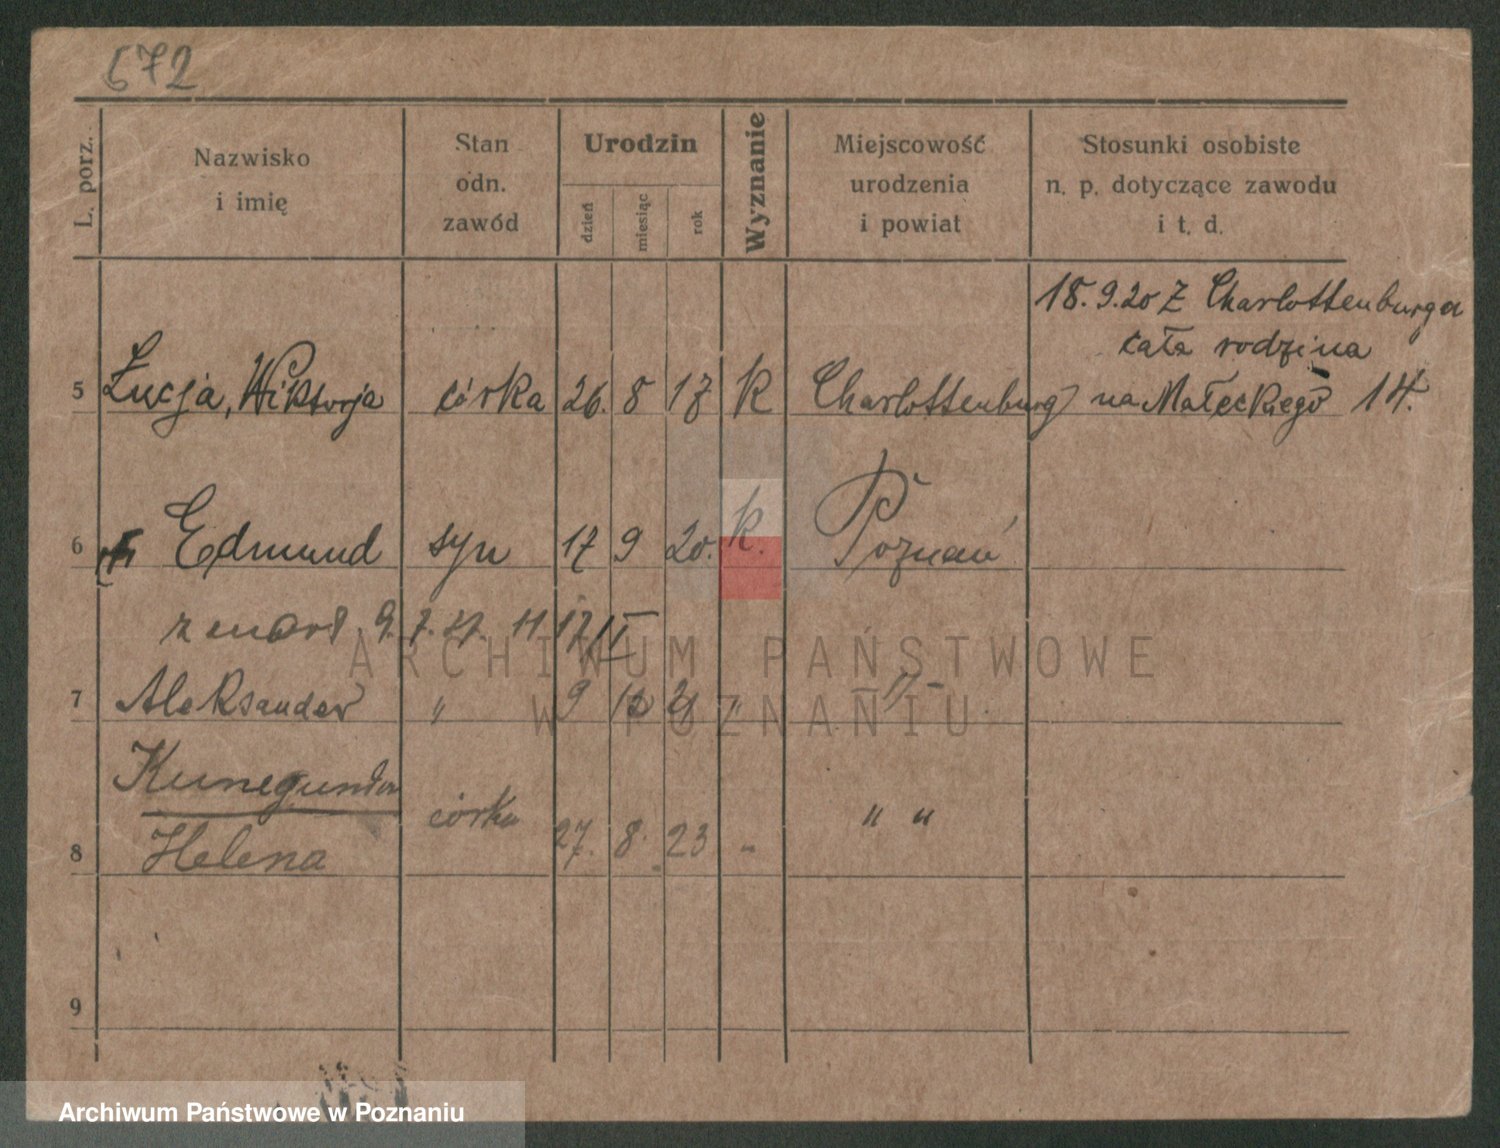 672
L. porz.
Nazwisko
i imię
Stan
odn.
zawód
Urodzin
dzień
miesiąc
rok
Wyznanie
Miejscowość
urodzenia
i powiat
Stosunki osobiste
n. p. dotyczące zawodu
i t. d.
18. 9. 20 Z Charlottenburga
cała rodzina
5 Łucja, Wiktorja córka 26. 8 17 k Charlottenburg na Małeckiego 14.
6 Edmund syn 17 9 20. k. Poznań
zmarł 9. 7. 21.
ARCHIWUM PAŃSTWOWE
W POZNANIU
7 Aleksander " 9 12 21 " " -
Kunegunda
córka " "
8 Helena 27. 8. 23 "
9
Archiwum Państwowe w Poznaniu